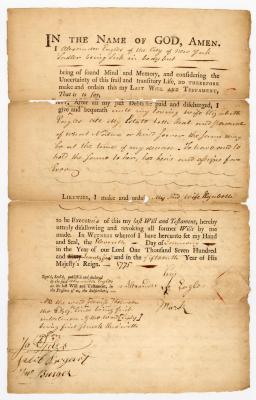 IN THE NAME OF GOD, AMEN.
I Alexander Eagles of the City of New York
being Sick in body but
being of sound Mind and Memory, and considering the
Uncertainty of this frail and transitory Life, DO THEREFORE
make and ordain this my LAST WILL AND TESTAMENT,
That is to say,
First, After all my just Debts be paid and discharged, I
give and bequeath unto my loving wife Elizabeth
Eagles all my Estate both real and personal
of what Nature or kind soever the same may
be at the time of my decease. To have and to
hold the same to her, her heirs and assigns for
Ever
LIKEWISE, I make and ordain My said Wife Elizabeth
to be Executrix of this my last Will and Testament, hereby
utterly disallowing and revoking all former Wills by me
made. In WITNESS whereof I have hereunto set my Hand
and Seal, the Eleventh Day of January
in the Year of our Lord One Thousand Seven Hundred
and Seventy five and in the fifteenth Year of His
Majesty's Reign. 1775
Sign'd, Seal'd, published and declared
as his last Will and Testament, in
the Presence of us, the Subscribers.
his
Alexander Eagles
Mark
the word
being first